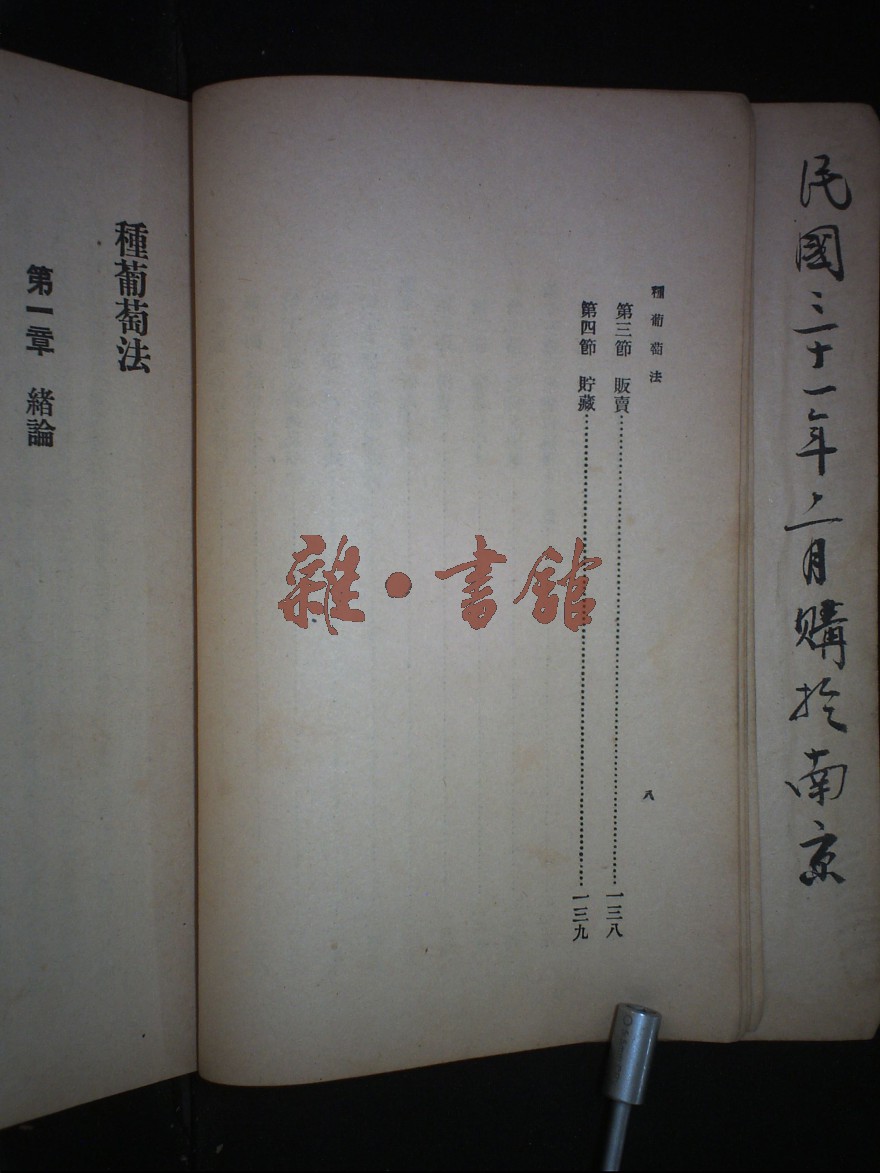 民國三十一年二月購於南京
種葡萄法
第三節 販賣……一三八
第四節 貯藏……一三九
八
雜·書館
種葡萄法
第一章 緒論